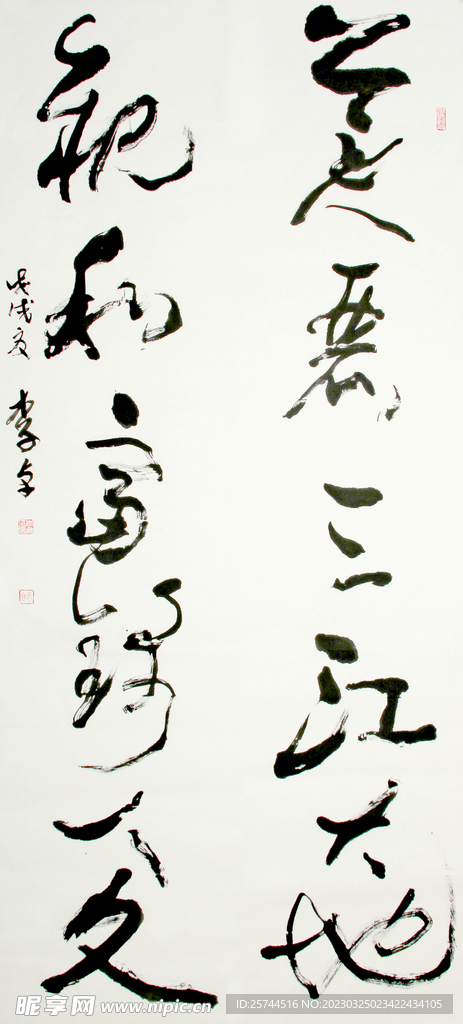 美麗三江大地
親和富錦人文
戊戌夏 李卓
昵享网 www.nipic.cn
ID:25744516 NO:20230325023422434105